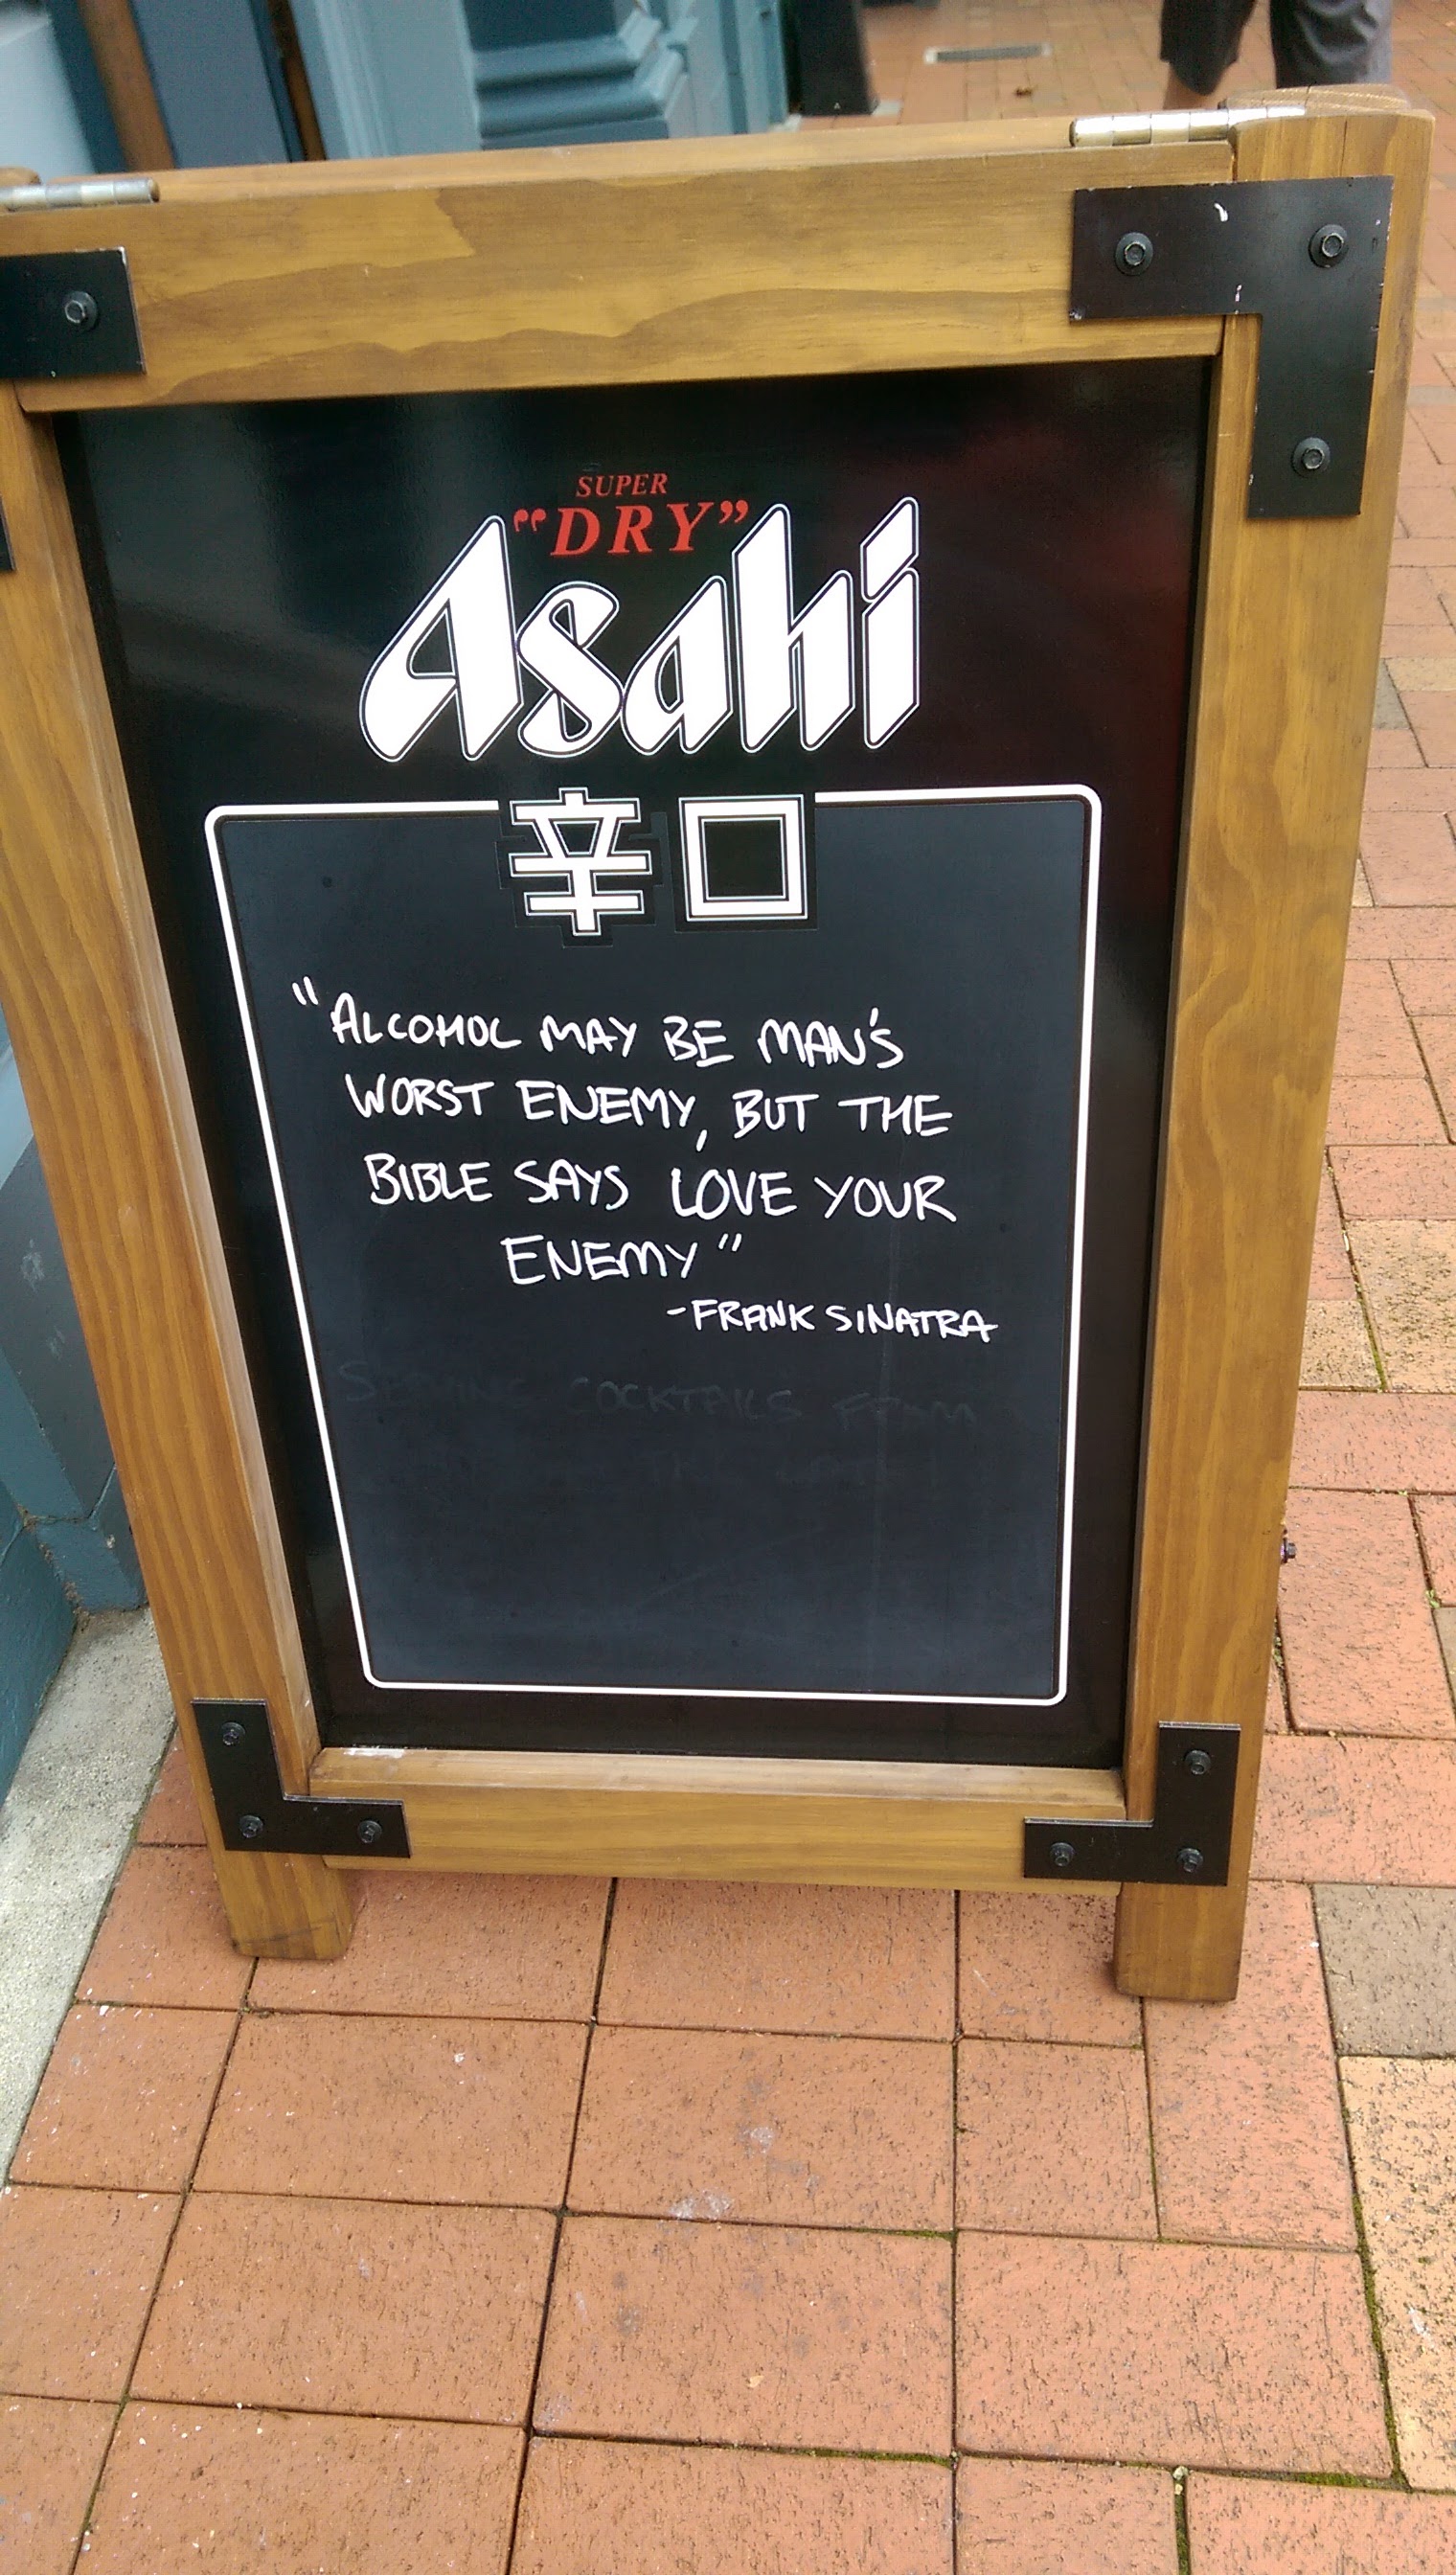 SUPER
"DRY"
Asahi
辛口
"ALCOHOL MAY BE MAN'S
WORST ENEMY, BUT THE
BIBLE SAYS LOVE YOUR
ENEMY"
-FRANK SINATRA
SERVING COCKTAILS FROM